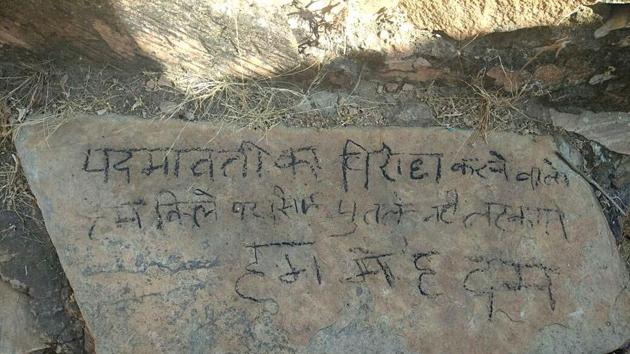 पदमावती का विरोध करने वाले
हम किले पर सिर्फ पुतले नही लटकाते
हम मे है दम